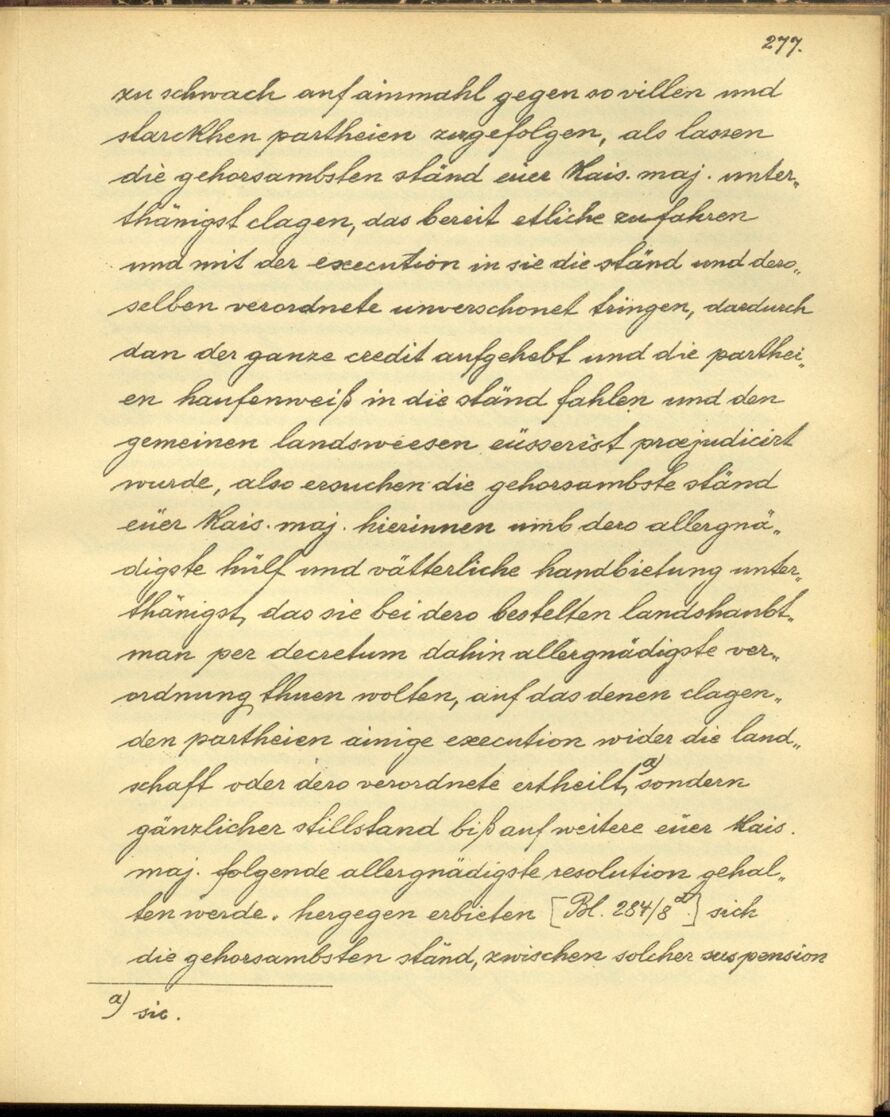 277.
zu schwach auf ainmahl gegen so villen und
starckhen partheien zugefolgen, als lassen
die gehorsambsten ständ euer Kais. maj. unter„
thänigst clagen, das bereit etliche zufahren
und mit der execution in sie die ständ und dero„
selben verordnete unverschonet tringen, dardurch
dan der ganze credit aufgehebt und die parthei„
en haufenweiß in die ständ fahlen und den
gemeinen landsweesen eüsserist præjudicirt
wurde, also ersuchen die gehorsambste ständ
eüer Kais. maj. hierinnen umb dero allergnä„
digste hülf und vätterliche handbietung unter„
thänigst, das sie bei dero bestelten landshaubt„
man per decretum dahin allergnädigste ver„
ordnung thuen wolten, auf das denen clagen„
den partheien ainige execution wider die land„
schaft oder dero verordnete ertheilt,a) sondern
gänzlicher stillstand biß auf weitere eüer Kais.
maj. folgende allergnädigste resolution gehal„
ten werde. hergegen erbieten [Bl. 284/8a] sich
die gehorsambsten ständ, zwischen solcher suspension
a) sic.